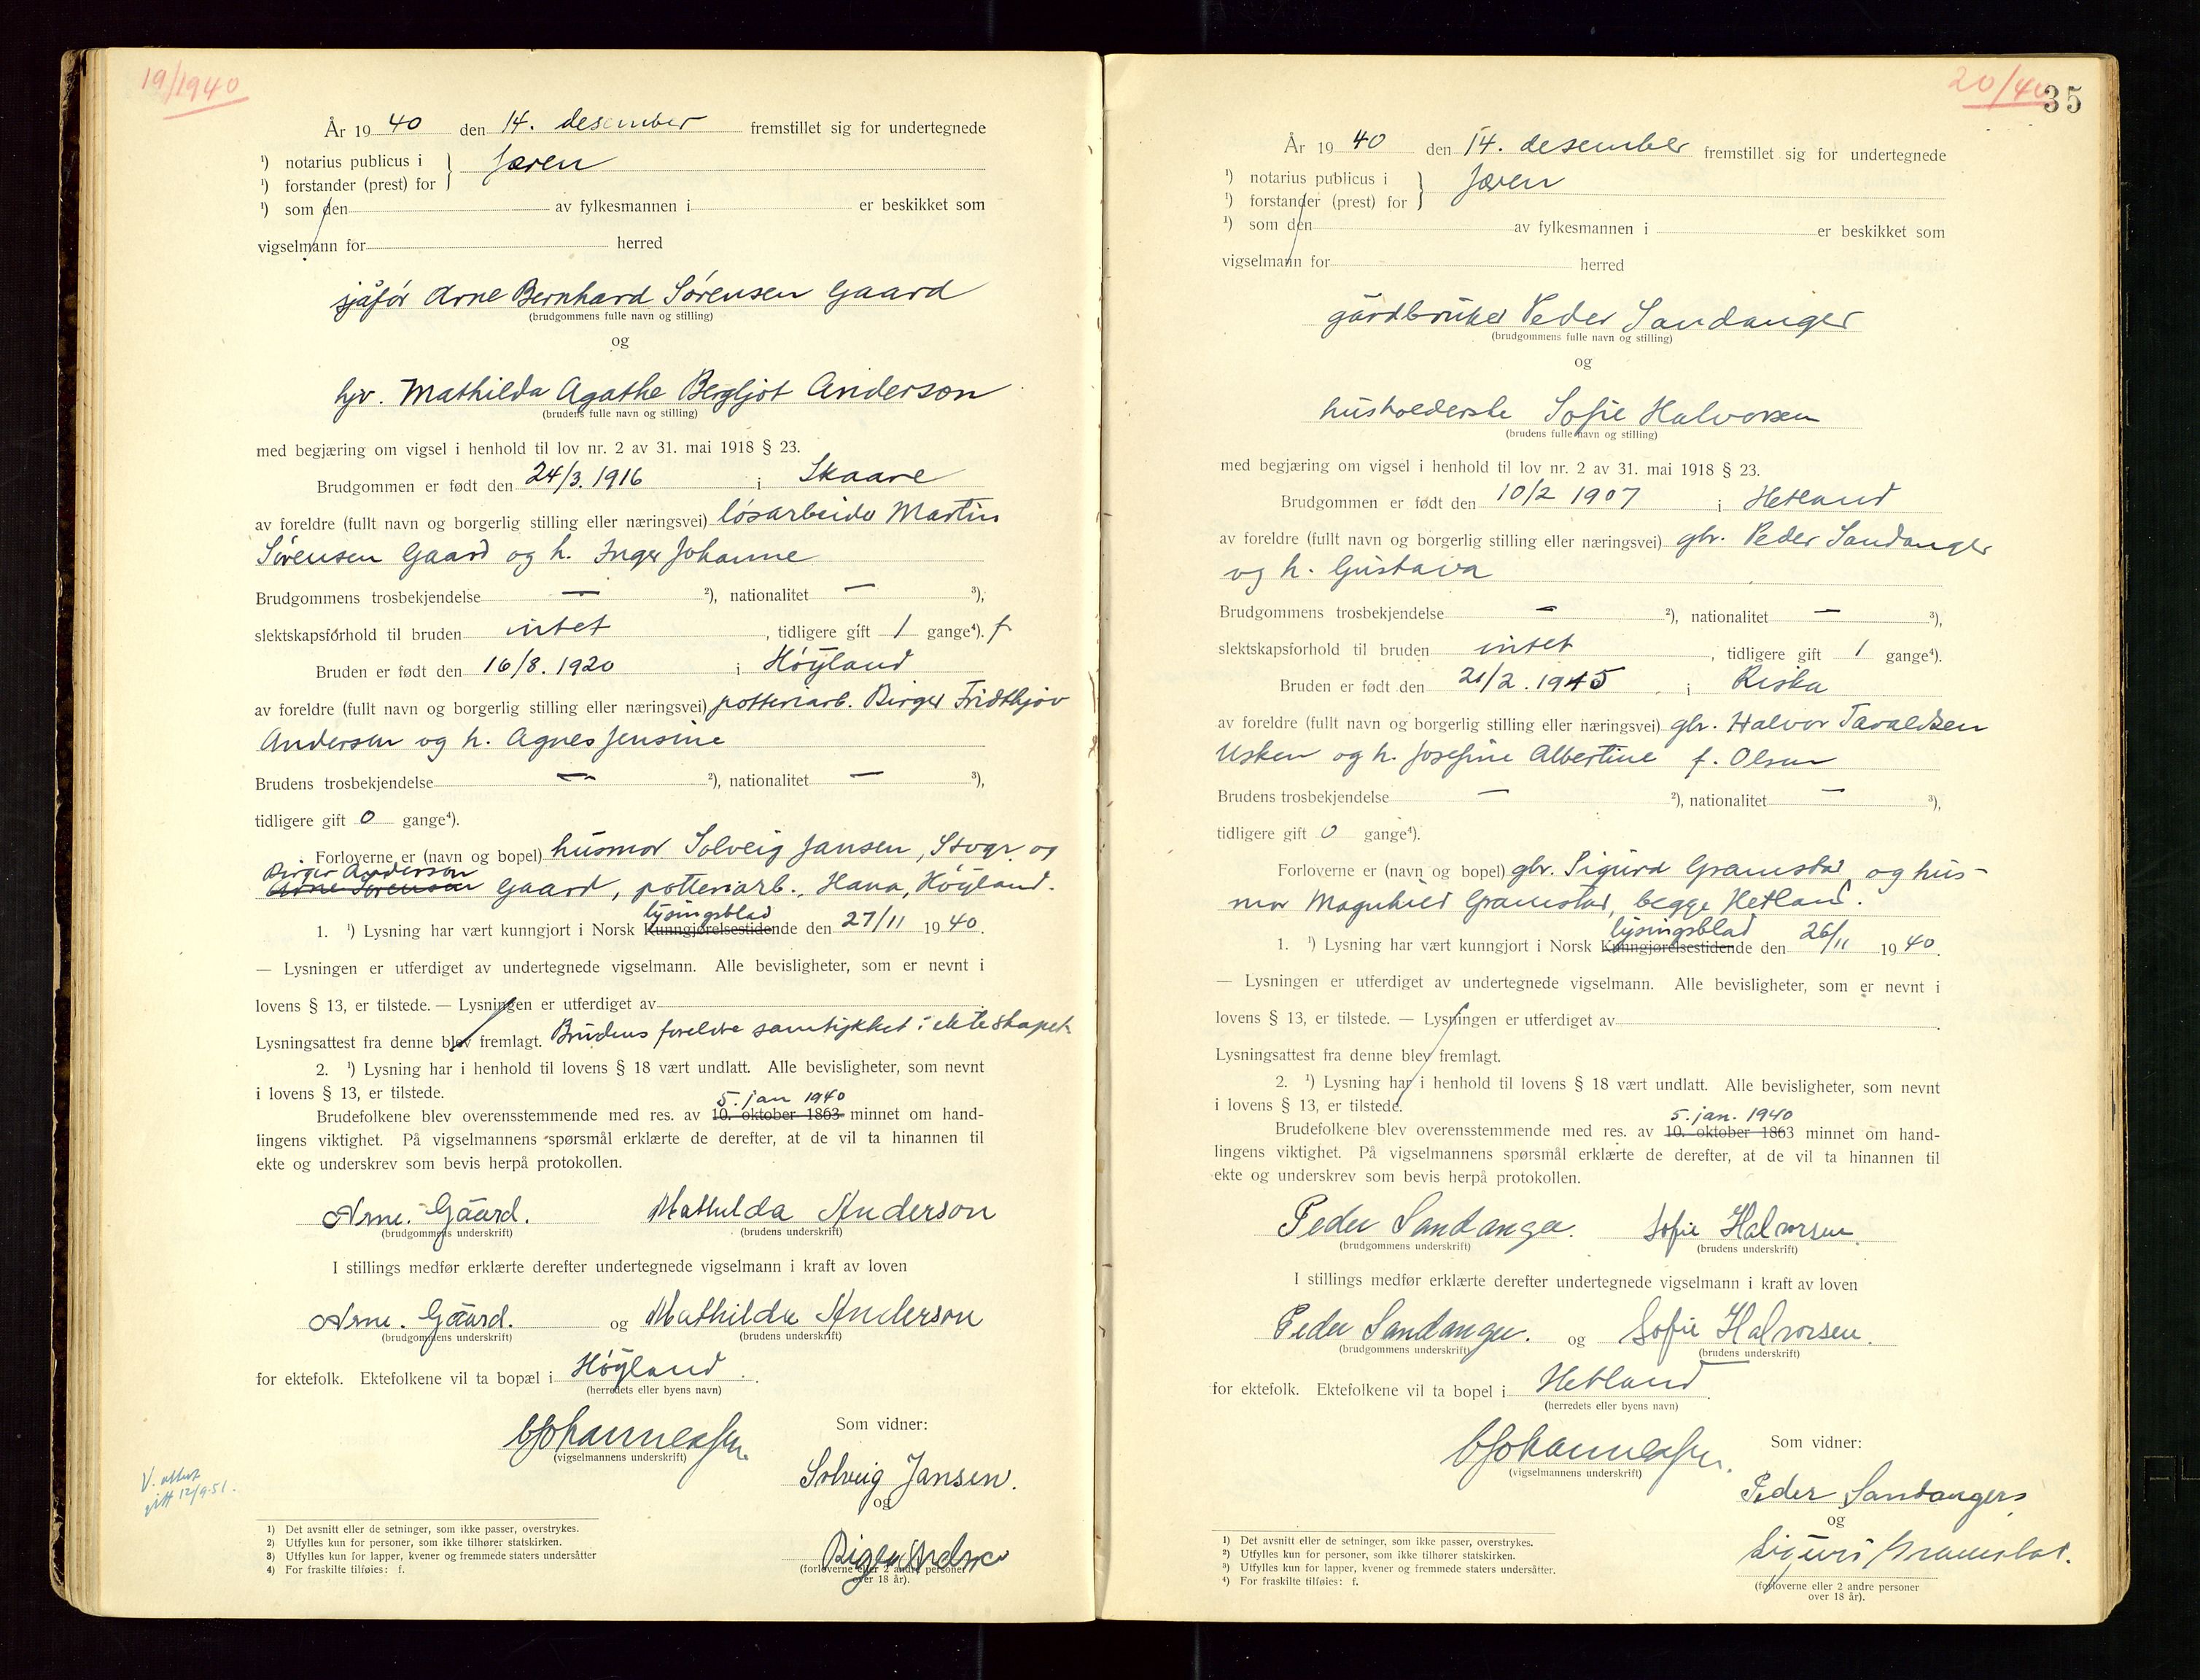 19/1940
År 19 40 den 14. desember fremstillet sig for undertegnede
¹) notarius publicus i } Jæren
¹) forstander (prest) for
¹) som den av fylkesmannen i er beskikket som
vigselmann for herred
sjåfør Arne Bernhard Sørensen Gaard
(brudgommens fulle navn og stilling)
og
hjv. Mathilda Agathe Bergljot Anderson
(brudens fulle navn og stilling)
med begjæring om vigsel i henhold til lov nr. 2 av 31. mai 1918 § 23.
Brudgommen er født den 24/3. 1916 i Skaare
av foreldre (fullt navn og borgerlig stilling eller næringsvei) løsarbeider Martin
Sørensen Gaard og h. Inger Johanne
Brudgommens trosbekjendelse — ²), nationalitet — ³),
slektskapsforhold til bruden intet, tidligere gift 1 gange⁴). f
Bruden er født den 16/8. 1920 i Høyland
av foreldre (fullt navn og borgerlig stilling eller næringsvei) potteriarb. Birger Fridthjov
Andersen og h. Agnes Jensine
Brudens trosbekjendelse — ²), nationalitet — ³),
tidligere gift 0 gange⁴).
Forloverne er (navn og bopel) husmor Solveig Jansen, Stvgr. og
Birger Anderson
Arne Sørensen Gaard, potteriarb., Hana, Høyland.
lysingsblad
1. ¹) Lysning har vært kunngjort i Norsk Kunngjørelsestidende den 27/11 1940.
— Lysningen er utferdiget av undertegnede vigselmann. Alle bevisligheter, som er nevnt i
lovens § 13, er tilstede. — Lysningen er utferdiget av
Lysningsattest fra denne blev fremlagt. Brudens foreldre samtykket i ekteskapet.
2. ¹) Lysning har i henhold til lovens § 18 vært undlatt. Alle bevisligheter, som nevnt
i lovens § 13, er tilstede.
5. jan 1940
Brudefolkene blev overensstemmende med res. av 10. oktober 1863 minnet om hand-
lingens viktighet. På vigselmannens spørsmål erklærte de derefter, at de vil ta hinannen til
ekte og underskrev som bevis herpå protokollen.
Arne. Gaard. Mathilda Anderson
(brudgommens underskrift) (brudens underskrift)
I stillings medfør erklærte derefter undertegnede vigselmann i kraft av loven
Arne. Gaard. og Mathilda Anderson
(brudgommens underskrift) (brudens underskrift)
for ektefolk. Ektefolkene vil ta bopæl i Høyland.
(herredets eller byens navn)
Johannessen.
(vigselmannens underskrift)
Som vidner:
Solveig Jansen.
og
Birger
(forloverne eller 2 andre personer
over 18 år).
V. attest
gitt 12/9.51.
1) Det avsnitt eller de setninger, som ikke passer, overstrykes.
2) Utfylles kun for personer, som ikke tilhører statskirken.
3) Utfylles kun for lapper, kvener og fremmede staters undersåtter
4) For fraskilte tilføies: f.
20/40 35
År 19 40 den 14. desember fremstillet sig for undertegnede
¹) notarius publicus i } Jæren
¹) forstander (prest) for
¹) som den av fylkesmannen i er beskikket som
vigselmann for herred
gårdbruker Peder Sandanger
(brudgommens fulle navn og stilling)
og
husholderske Sofie Halvorsen
(brudens fulle navn og stilling)
med begjæring om vigsel i henhold til lov nr. 2 av 31. mai 1918 § 23.
Brudgommen er født den 10/2 1907 i Hetland
av foreldre (fullt navn og borgerlig stilling eller næringsvei) gbr. Peder Sandanger
og h. Gustava
Brudgommens trosbekjendelse — ²), nationalitet — ³),
slektskapsforhold til bruden intet, tidligere gift 1 gange⁴).
Bruden er født den 21/2. i Riska
av foreldre (fullt navn og borgerlig stilling eller næringsvei) gbr. Halvor Tavaldsen
Usken og h. Josefine Albertine f. Olsen
Brudens trosbekjendelse — ²), nationalitet — ³),
tidligere gift 0 gange⁴).
Forloverne er (navn og bopel) gbr. Sigurd Gramstad og hus-
mor Magnhild Gramstad, begge Hetland.
lysingsblad
1. ¹) Lysning har vært kunngjort i Norsk Kunngjørelsestidende den 26/11 1940.
— Lysningen er utferdiget av undertegnede vigselmann. Alle bevisligheter, som er nevnt i
lovens § 13, er tilstede. — Lysningen er utferdiget av
Lysningsattest fra denne blev fremlagt.
2. ¹) Lysning har i henhold til lovens § 18 vært undlatt. Alle bevisligheter, som nevnt
i lovens § 13, er tilstede.
5. jan. 1940
Brudefolkene blev overensstemmende med res. av 10. oktober 1863 minnet om hand-
lingens viktighet. På vigselmannens spørsmål erklærte de derefter, at de vil ta hinannen til
ekte og underskrev som bevis herpå protokollen.
Peder Sandanger. Sofie Halvorsen.
(brudgommens underskrift) (brudens underskrift)
I stillings medfør erklærte derefter undertegnede vigselmann i kraft av loven
Peder Sandanger. og Sofie Halvorsen.
(brudgommens underskrift) (brudens underskrift)
for ektefolk. Ektefolkene vil ta bopel i Hetland.
(herredets eller byens navn)
Johannessen.
(vigselmannens underskrift)
Som vidner:
Peder Sandanger
og
Sigurd Gramstad.
(forloverne eller 2 andre personer
over 18 år).
1) Det avsnitt eller de setninger, som ikke passer, overstrykes.
2) Utfylles kun for personer, som ikke tilhører statskirken.
3) Utfylles kun for lapper, kvener og fremmede staters undersåtter.
4) For fraskilte tilføies: f.